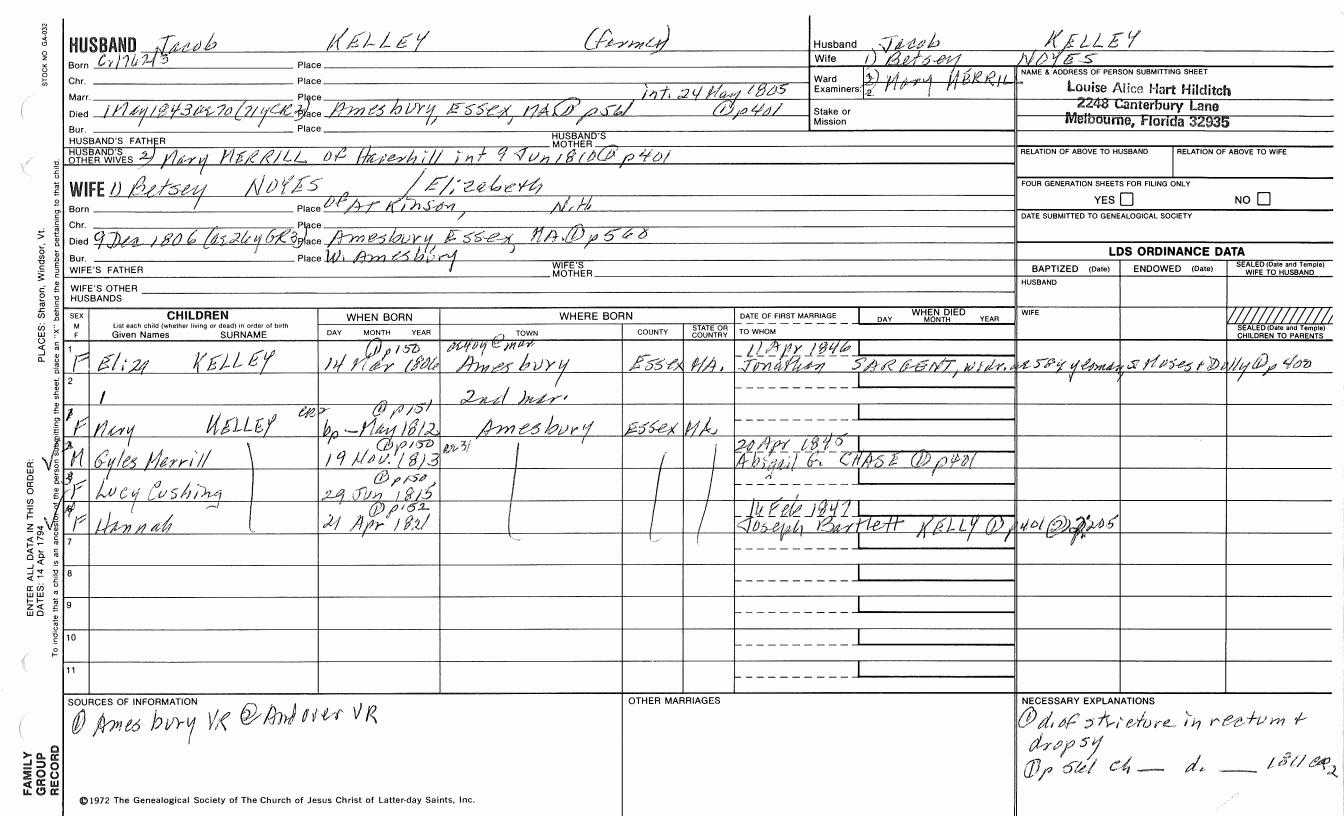 STOCK NO GA-032
HUSBAND Jacob KELLEY (farmer)
Born Place
Chr. Place
Marr. Place int. 24 May 1805
Died 1 May 1843 Place Amesbury, Essex, MA ① p561 ① p401
Bur. Place
HUSBAND'S FATHER HUSBAND'S MOTHER
HUSBAND'S OTHER WIVES 2) Mary MERRILL of Haverhill int 9 Jun 1810 ① p401
WIFE 1) Betsey NOYES / Elizabeth
Born Place of Atkinson, N.H.
Chr. Place
Died 9 Dec 1806 (ae 26y GR3) Place Amesbury, Essex, MA. ① p568
Bur. Place W. Amesbury
WIFE'S FATHER WIFE'S MOTHER
WIFE'S OTHER HUSBANDS
Husband Jacob KELLEY
Wife 1) Betsey NOYES
Ward Examiners: 1. 2. 2) Mary MERRIL
Stake or Mission
NAME & ADDRESS OF PERSON SUBMITTING SHEET
Louise Alice Hart Hilditch
2248 Canterbury Lane
Melbourne, Florida 32935
RELATION OF ABOVE TO HUSBAND RELATION OF ABOVE TO WIFE
FOUR GENERATION SHEETS FOR FILING ONLY
YES NO
DATE SUBMITTED TO GENEALOGICAL SOCIETY
LDS ORDINANCE DATA
BAPTIZED (Date) ENDOWED (Date) SEALED (Date and Temple) WIFE TO HUSBAND
HUSBAND
WIFE
SEALED (Date and Temple) CHILDREN TO PARENTS
SEX M F CHILDREN WHEN BORN WHERE BORN DATE OF FIRST MARRIAGE WHEN DIED
List each child (whether living or dead) in order of birth
Given Names SURNAME DAY MONTH YEAR TOWN COUNTY STATE OR COUNTRY TO WHOM DAY MONTH YEAR
1 ① p150 ae 40y @ mar 11 Apr 1846
F Eliza KELLEY 14 Mar 1806 Amesbury Essex MA. Jonathan SARGENT, widr. ae 58y yeoman, s Moses & Dolly ① p400
2 2nd mar.
1 CR2 ① p151
F Mary KELLEY bp – May 1812 Amesbury Essex MA.
2 ① p150 20 Apr 1845
M Gyles Merrill 19 Nov. 1813 Abigail G. CHASE ① p401
3 ① p150
F Lucy Cushing 29 Jun 1815
4 ① p152 14 Feb 1847
F Hannah 21 Apr 1821 Joseph Bartlett KELLY ① p401 ② 205
7
8
9
10
11
SOURCES OF INFORMATION
① Amesbury VR ② Andover VR
OTHER MARRIAGES
NECESSARY EXPLANATIONS
① d. of stricture in rectum &
dropsy
① p 561 ch — d. — 1811 CR2
©1972 The Genealogical Society of The Church of Jesus Christ of Latter-day Saints, Inc.
FAMILY GROUP RECORD
ENTER ALL DATA IN THIS ORDER:
DATES: 14 Apr 1794
PLACES: Sharon, Windsor, Vt.
To indicate that a child is an ancestor of the person submitting the sheet, place an "X" behind the number pertaining to that child.